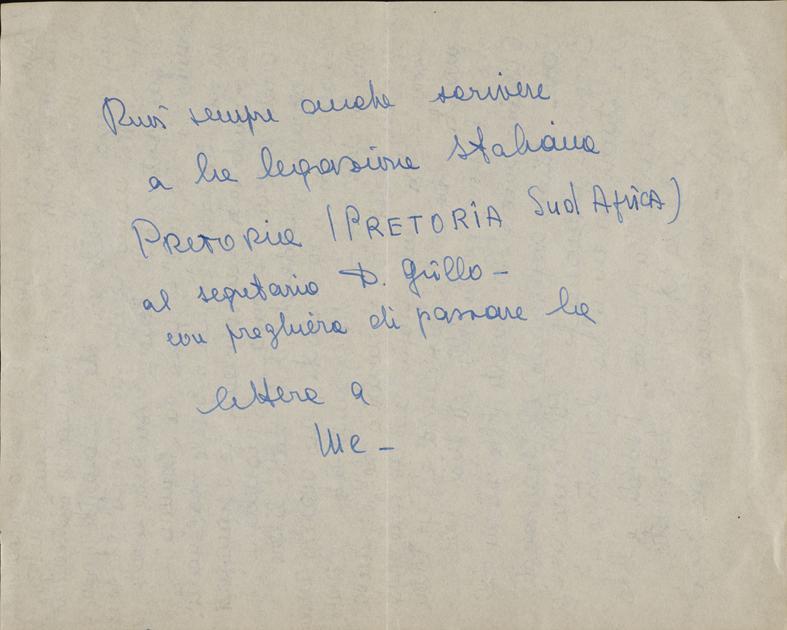 Puoi sempre anche scrivere
a la legazione Italiana
Pretoria (PRETORIA Sud Africa)
al segretario D. Grillo -
con preghiera di passare la
lettera a
Me -